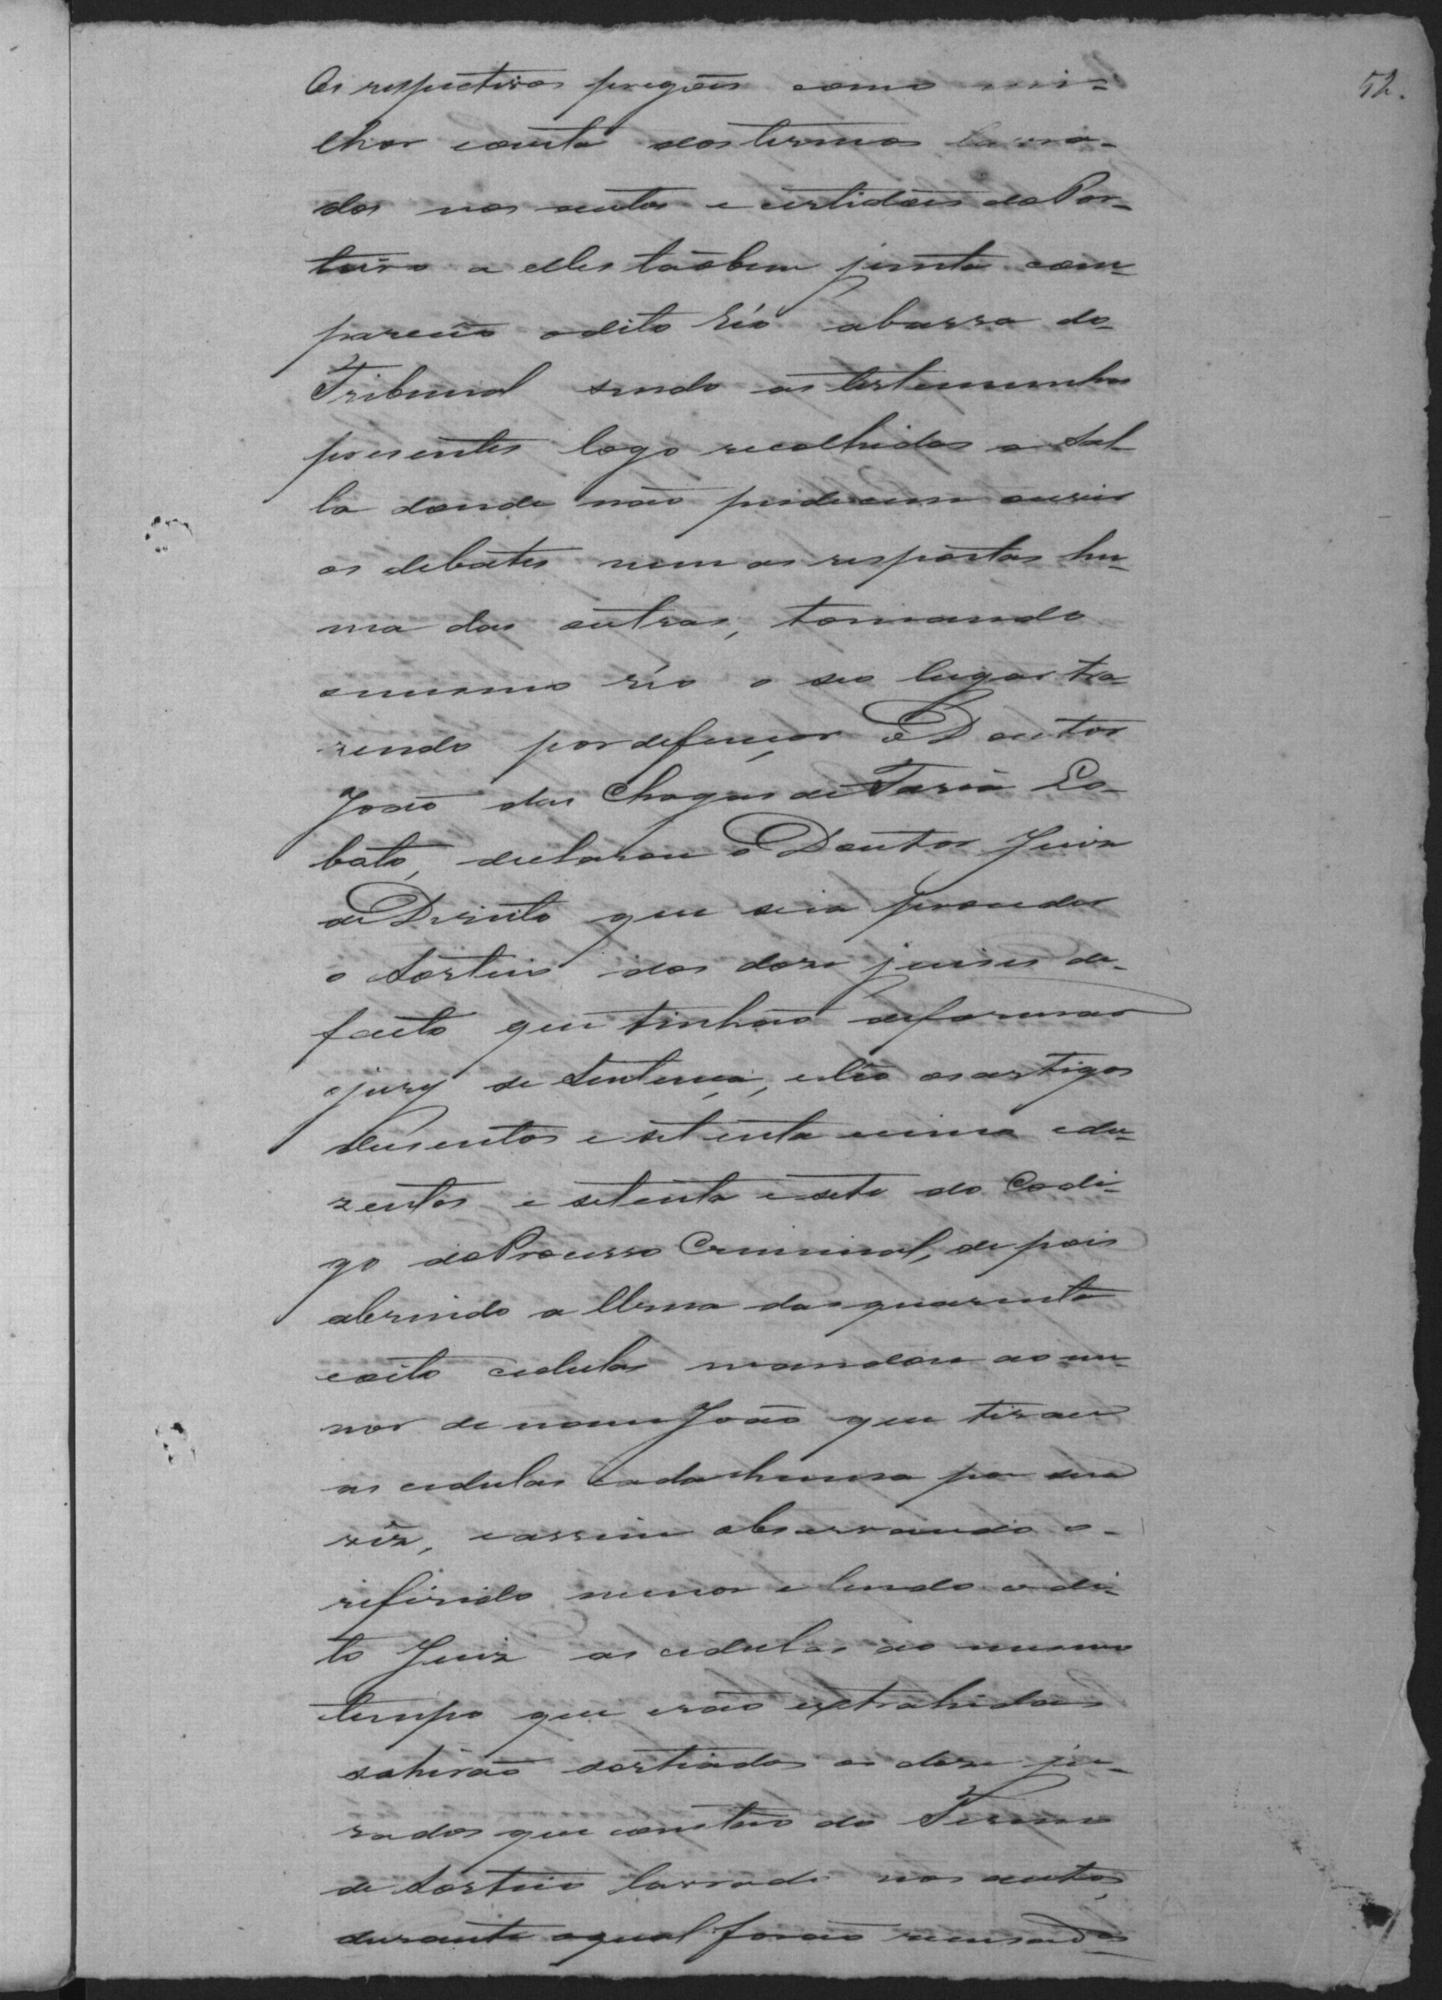 52.
os respectivos pregões como mi-
lhor consta dos termos lavra-
dos nos autos e certidões do Por-
teiro a elles taobem junta com-
pareceo o dito réo a barra do
Tribunal sendo as testemunhas
presentes logo recolhidas a Sal-
la donde não podessem ouvir
os debates nem as respostas hu-
ma das outras, tomando
o mesmo réo o seo lugar tra-
zendo por defensor o Doutor
João das Chagas de Faria Lo-
bato, declarou o Doutor Juiz
de Direito que seia proceder
o Sorteio dos doze juises de
facto que tinhão de formar
o jury de Sentença, e leo os artigos
dusentos e setenta e cinco e du-
zentos e setenta e sete do Codi-
go do Processo Criminal, depois
abrindo a Urna das quarenta
e oito cedulas mandou ao me-
nor de nome João que tirace
as cedulas cada huma por sua
véz, e assim observando o
referido menor e lendo o di-
to Juiz as cedulas ao mesmo
tempo que erão extrahidas
sahirão sorteados os doze ju-
rados que constão do Termo
de Sorteio lavrado nos autos,
durante o qual forão recusados